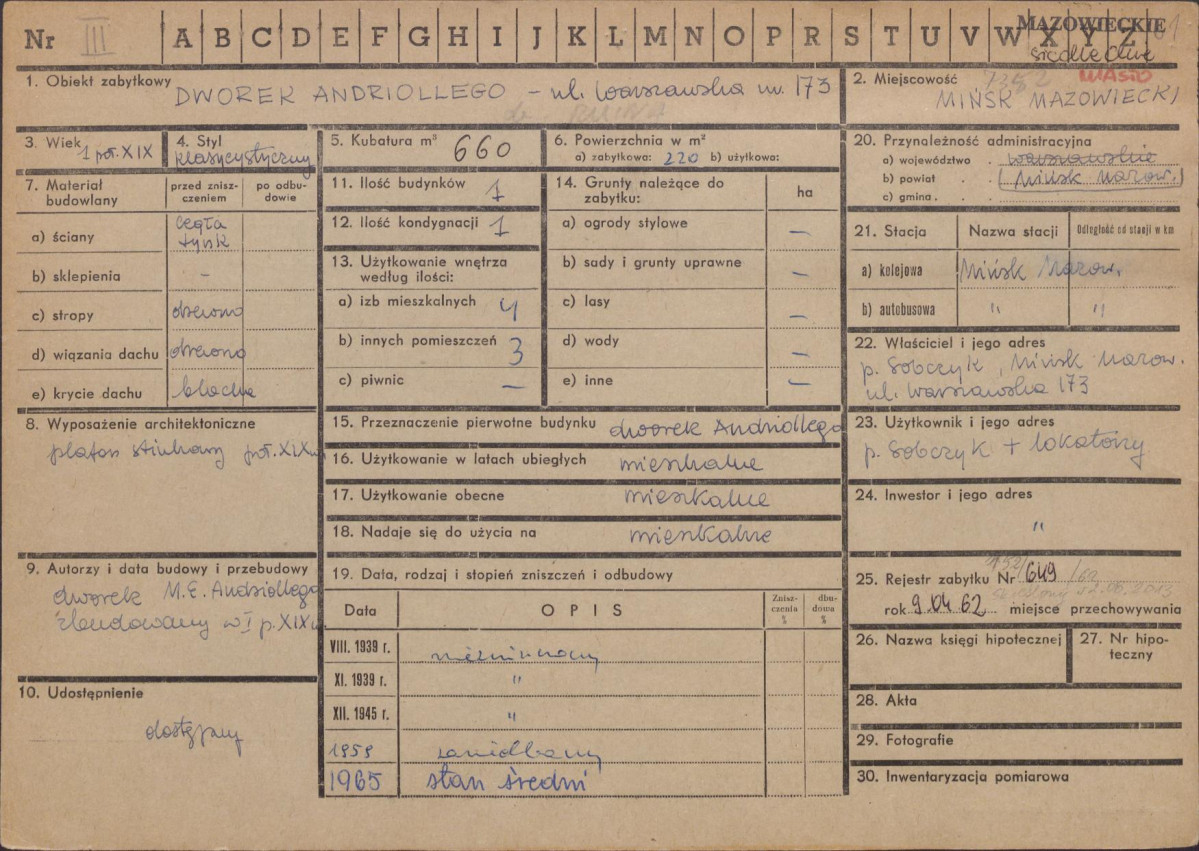 Nr III A B C D E F G H I J K L M N O P R S T U V W X Y Z
MAZOWIECKIE
siedleckie
MIASTO
1. Obiekt zabytkowy DWOREK ANDRIOLLEGO – ul. Warszawska nr. 173
2. Miejscowość
MIŃSK MAZOWIECKI
3. Wiek 1 poł. XIX
4. Styl klasycystyczny
5. Kubatura m³ 660
6. Powierzchnia w m²
a) zabytkowa: 220 b) użytkowa:
7. Materiał budowlany
przed zniszczeniem
po odbudowie
a) ściany cegła tynk
b) sklepienia –
c) stropy drewno
d) wiązania dachu drewno
e) krycie dachu blacha
8. Wyposażenie architektoniczne
plafon stiukowy poł. XIX w
9. Autorzy i data budowy i przebudowy
dworek M.E. Andriollego
zbudowany w I p. XIX w
10. Udostępnienie
dostępny
11. Ilość budynków 1
12. Ilość kondygnacji 1
13. Użytkowanie wnętrza
według ilości:
a) izb mieszkalnych 4
b) innych pomieszczeń 3
c) piwnic –
14. Grunty należące do
zabytku:
ha
a) ogrody stylowe –
b) sady i grunty uprawne –
c) lasy –
d) wody –
e) inne –
15. Przeznaczenie pierwotne budynku dworek Andriollego
16. Użytkowanie w latach ubiegłych mieszkalne
17. Użytkowanie obecne mieszkalne
18. Nadaje się do użycia na mieszkalne
19. Data, rodzaj i stopień zniszczeń i odbudowy
Data
OPIS
Zniszczenia %
dbudowa %
VIII. 1939 r. niezniszczony
XI. 1939 r. "
XII. 1945 r. "
1959 zaniedbany
1965 stan średni
20. Przynależność administracyjna
a) województwo . warszawskie
b) powiat . . (Mińsk Mazow.)
c) gmina . .
21. Stacja
Nazwa stacji
Odległość od stacji w km
a) kolejowa Mińsk Mazow.
b) autobusowa " "
22. Właściciel i jego adres
p. Sobczyk, Mińsk Mazow.
ul. Warszawska 173
23. Użytkownik i jego adres
p. Sobczyk + lokatorzy
24. Inwestor i jego adres
"
25. Rejestr zabytku Nr 649 /62
rok 9.04.62 miejsce przechowywania
26. Nazwa księgi hipotecznej
27. Nr hipoteczny
28. Akta
29. Fotografie
30. Inwentaryzacja pomiarowa